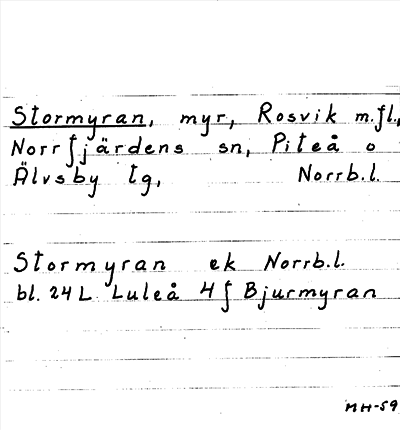 Stormyran, myr, Rosvik m.fl.,
Norrfjärdens sn, Piteå o
Älvsby tg, Norrb.l.
Stormyran ek Norrb.l.
bl. 24 L Luleå 4 f Bjurmyran
MH-59